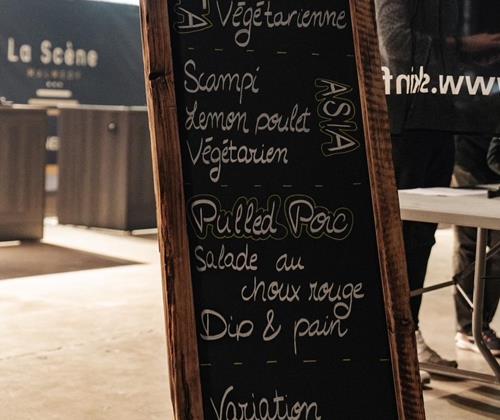 La Scène
MALMEDY
TA Végétarienne
Scampi
Lemon poulet
Végétarien
ASIA
Pulled Porc
Salade au
choux rouge
Dip & pain
Variation
www.skinf